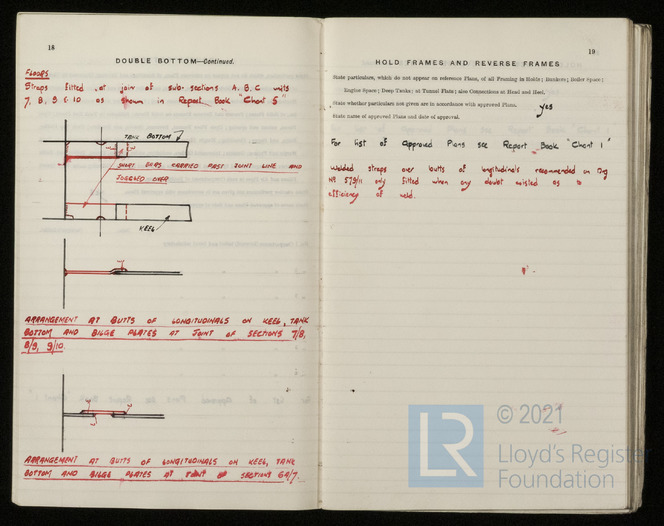 18
DOUBLE BOTTOM—Continued.
FLOORS
Straps fitted at join of sub-sections A, B, C units
7, 8, 9 & 10 as shown in Report Book "Chart 5"
TANK BOTTOM
SHORT ENDS CARRIED PAST JOINT LINE AND
JOGGLED OVER
KEEL
ARRANGEMENT AT BUTTS OF LONGITUDINALS ON KEEL, TANK
BOTTOM AND BILGE PLATES AT JOINT OF SECTIONS 7/8,
8/9, 9/10.
ARRANGEMENT AT BUTTS OF LONGITUDINALS ON KEEL, TANK
BOTTOM AND BILGE PLATES AT JOINT OF SECTIONS 6A/7.
19
HOLD FRAMES AND REVERSE FRAMES
State particulars, which do not appear on reference Plans, of all Framing in Holds; Bunkers; Boiler Space;
Engine Space; Deep Tanks; at Tunnel Flats; also Connections at Head and Heel.
State whether particulars not given are in accordance with approved Plans. yes
State name of approved Plans and date of approval.
For list of Approved Plans see Report Book "Chart 1"
Welded straps over butts of longitudinals recommended on Drg
No 579/11 only fitted when any doubt existed as to
efficiency of weld.
LR
© 2021
Lloyd's Register
Foundation